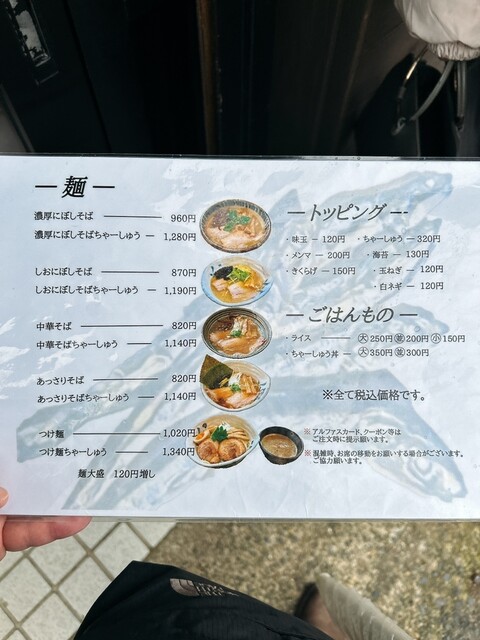 ― 麺 ―
濃厚にぼしそば ――― 960円
濃厚にぼしそばちゃーしゅう ― 1,280円
しおにぼしそば ――― 870円
しおにぼしそばちゃーしゅう ― 1,190円
中華そば ――― 820円
中華そばちゃーしゅう ― 1,140円
あっさりそば ――― 820円
あっさりそばちゃーしゅう ― 1,140円
つけ麺 ――― 1,020円
つけ麺ちゃーしゅう ― 1,340円
麺大盛 120円増し
―トッピング―
・味玉 ― 120円 ・ちゃーしゅう ― 320円
・メンマ ― 200円 ・海苔 ― 130円
・きくらげ ― 150円 ・玉ねぎ ― 120円
・白ネギ ― 120円
―ごはんもの―
・ライス ――― 大250円 並200円 小150円
・ちゃーしゅう丼 ― 大350円 並300円
※全て税込価格です。
※アルファスカード、クーポン等は
ご注文時に提示願います。
※混雑時、お席の移動をお願いする場合がございます。
ご協力願います。